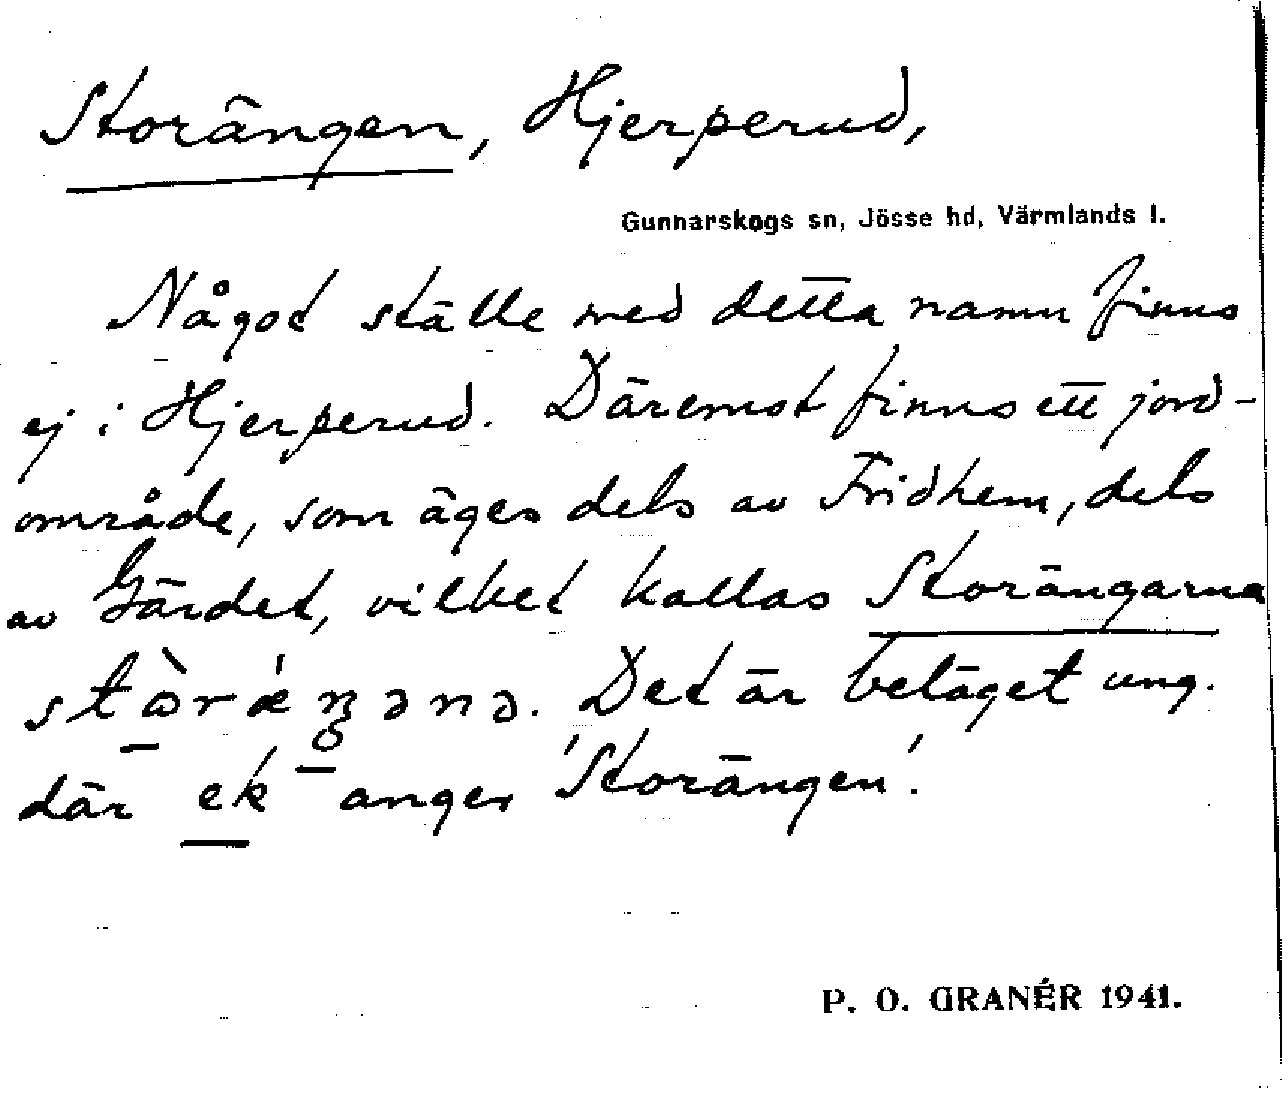 Storängen, Hjerperud,
Gunnarskogs sn, Jösse hd, Värmlands l.
Något ställe med detta namn finns
ej i Hjerperud. Däremot finns ett jord-
område, som äges dels av Fridhem, dels
av Gärdet, vilket kallas Storängarna
Det är beläget ung.
där ek anger 'Storängen'.
P. O. GRANÉR 1941.